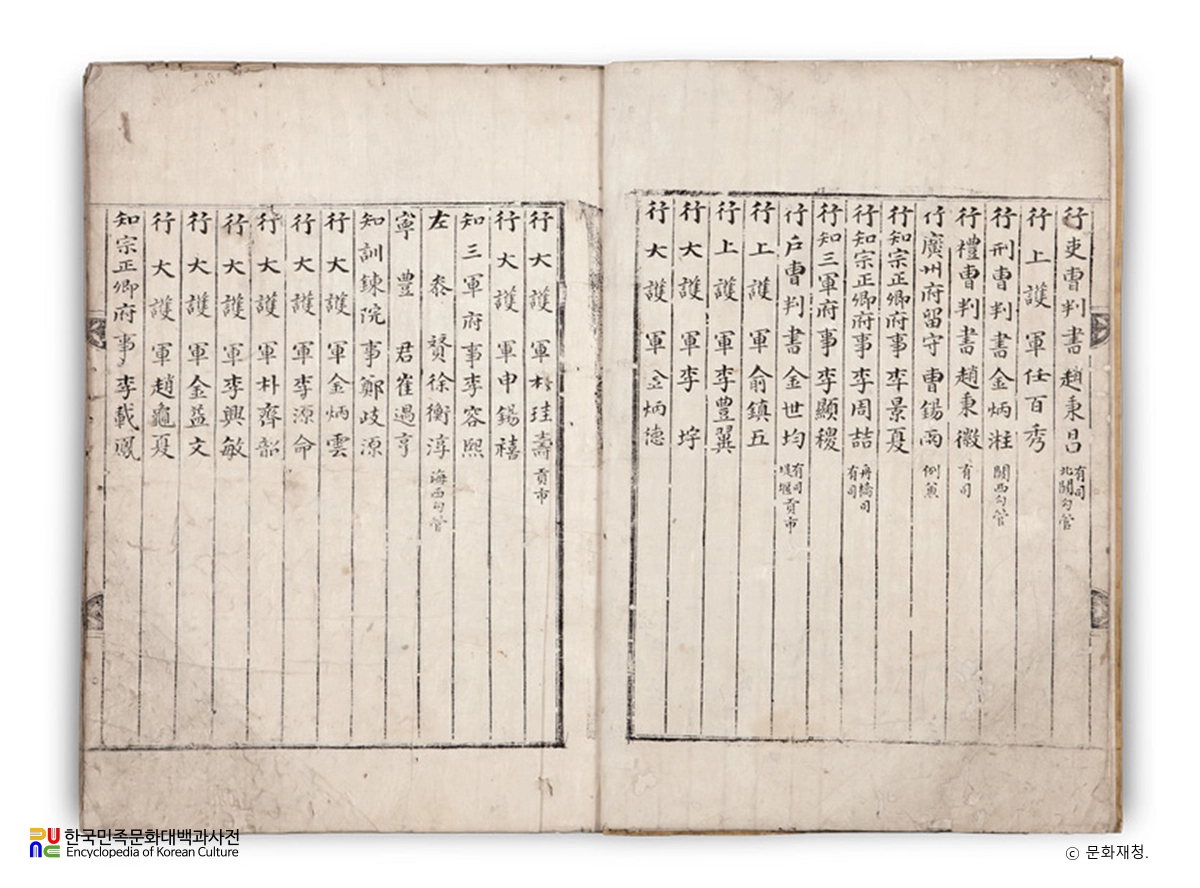 行吏曹判書趙秉昌 有司 北關句管
行上護軍任百秀
行刑曹判書金炳㴤 關西句管
行禮曹判書趙秉徽 有司
行廣州府留守曹錫雨 例兼
行知宗正卿府事李景夏
行知宗正卿府事李周喆 舟橋司 有司
行知三軍府事李顯稷
行戶曹判書金世均 有司 堤堰貢市
行上護軍兪鎭五
行上護軍李豊翼
行大護軍李㘾
行大護軍金炳德
行大護軍朴珪壽 貢市
行大護軍申錫禧
知三軍府事李容熙
左參贊徐衡淳 海西句管
寧豊君崔遇亨
知訓鍊院事鄭岐源
行大護軍金炳雲
行大護軍李源命
行大護軍朴齊韶
行大護軍李興敏
行大護軍金益文
行大護軍趙龜夏
知宗正卿府事李載鳳
한국민족문화대백과사전
Encyclopedia of Korean Culture
ⓒ 문화재청.